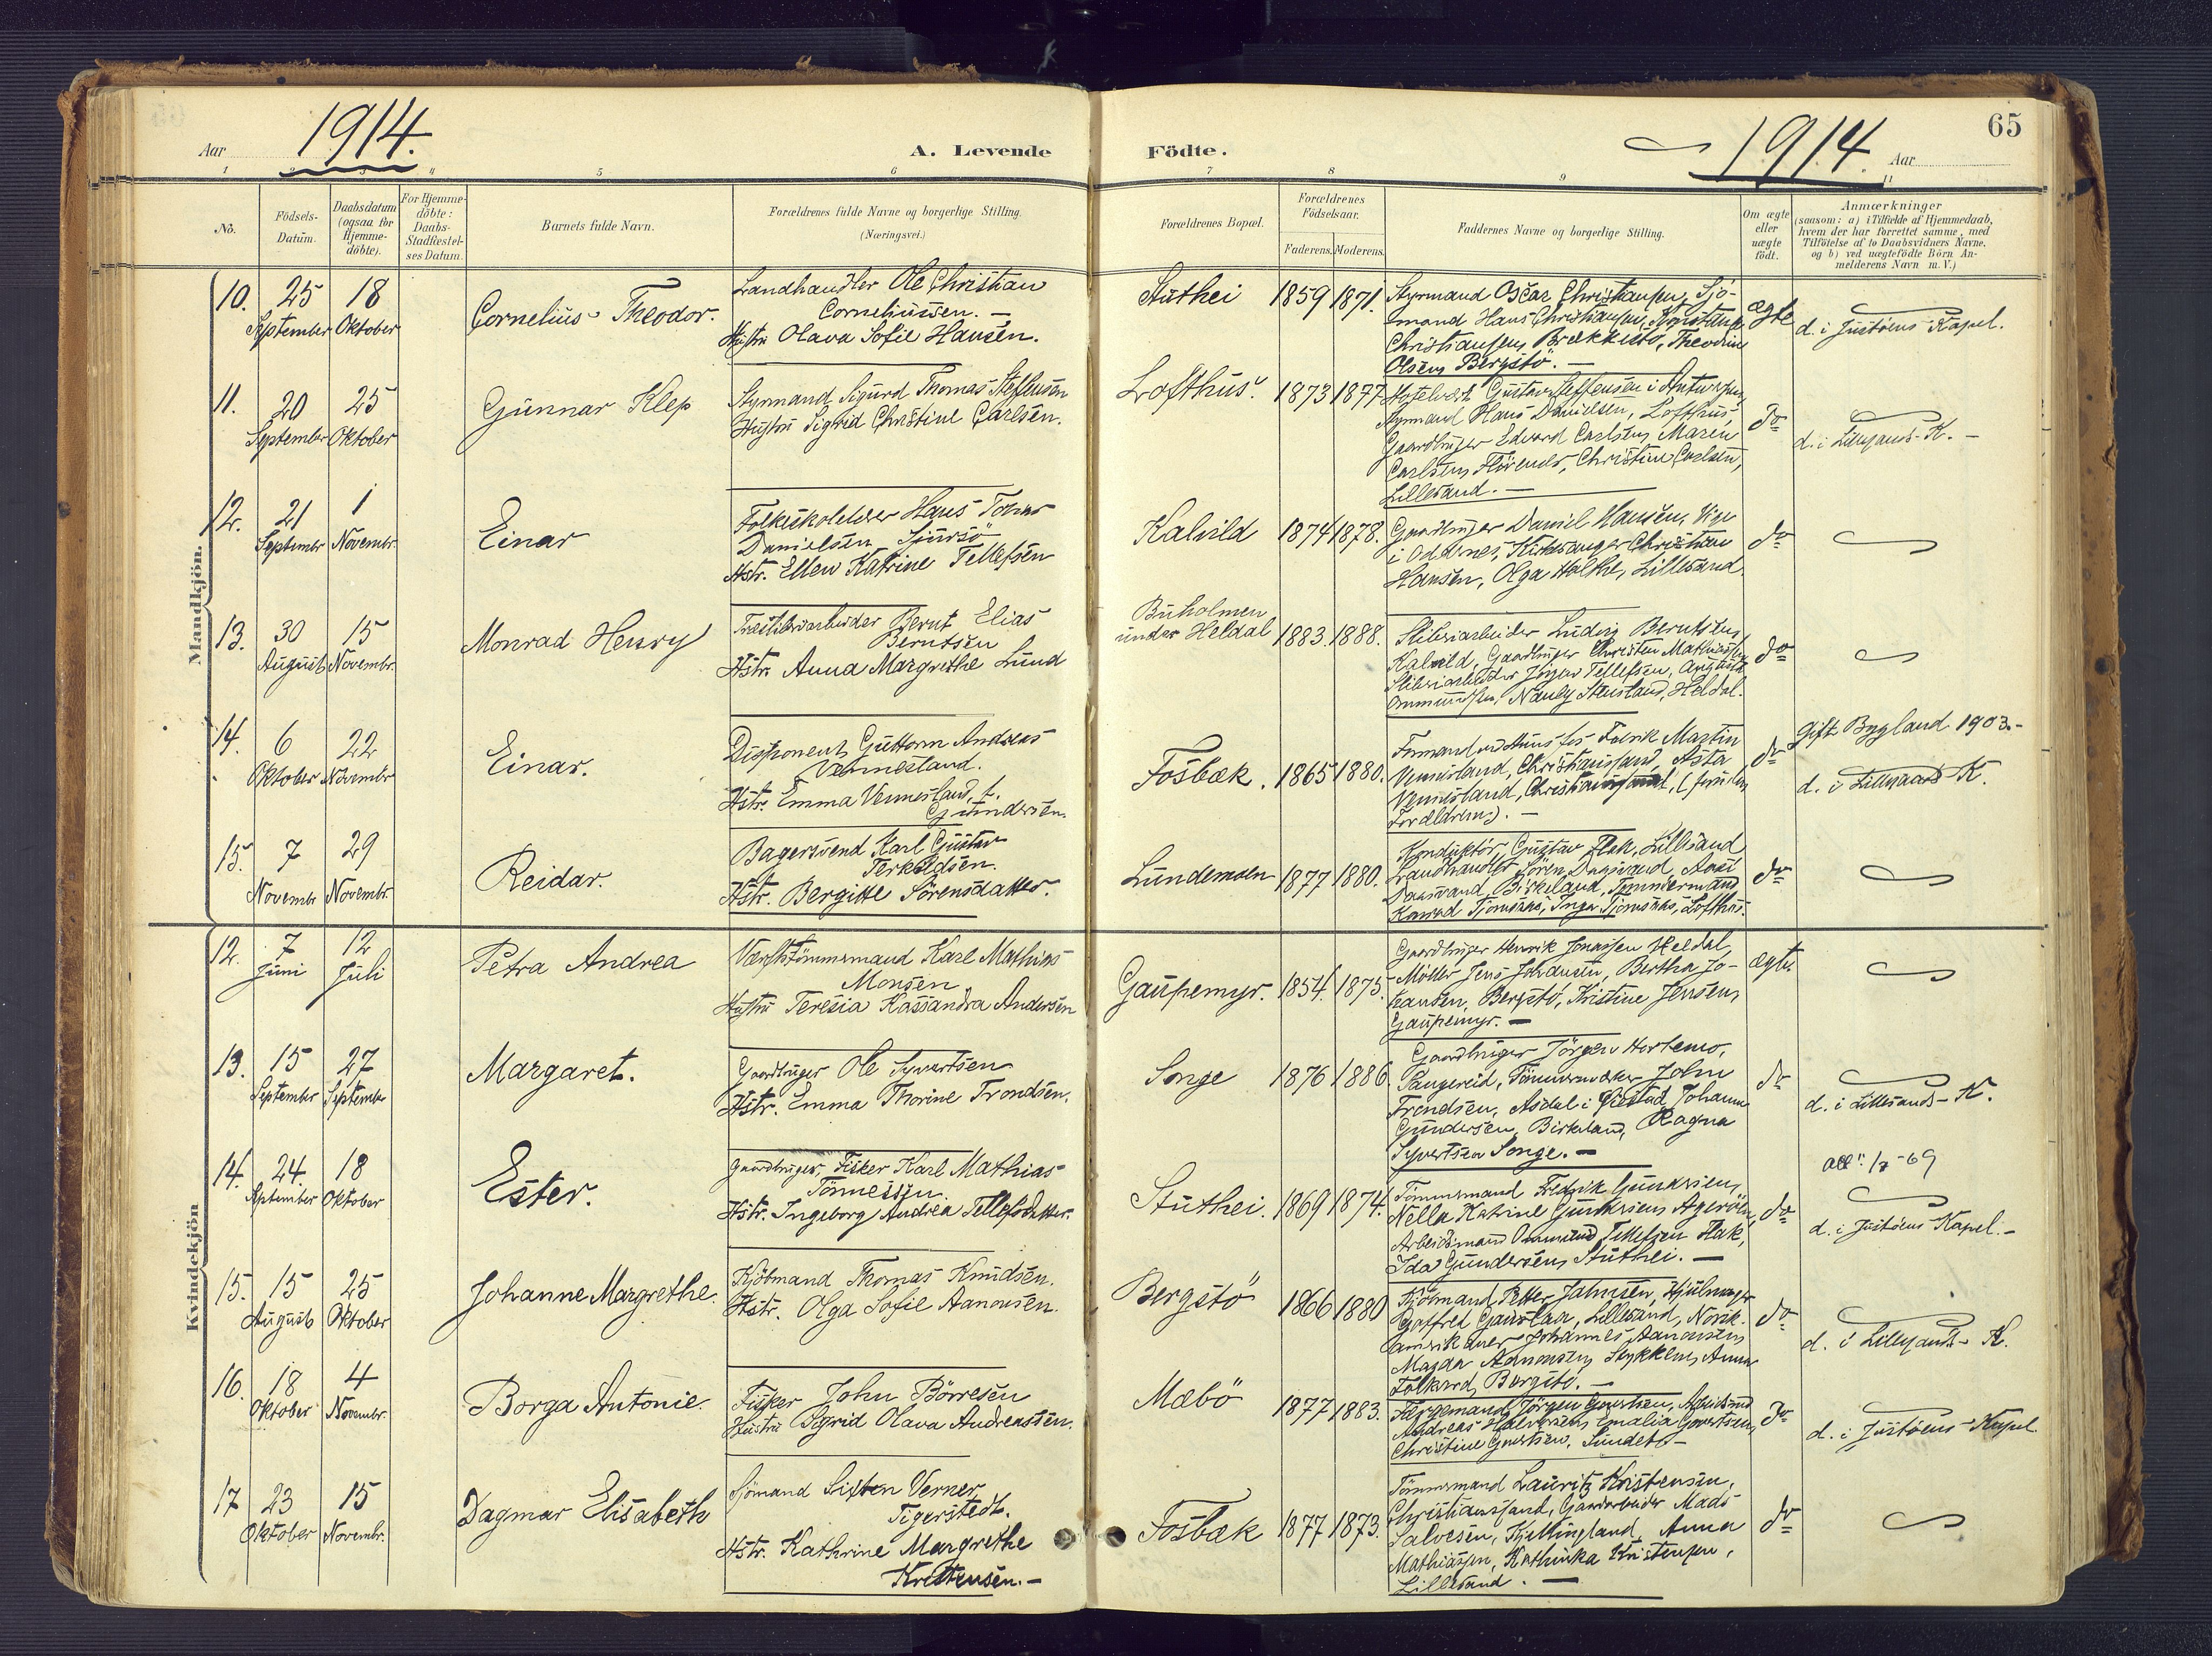 65
1914.
Aar
A. Levende
Födte.
1914.
Aar
1 2 3 4 5 6 7 8 9 11
No.
Födsels-Datum.
Daabsdatum (ogsaa for Hjemme-döbte).
For Hjemme-döbte: Daabs-Stadfæstel-ses Datum.
Barnets fulde Navn.
Forældrenes fulde Navne og borgerlige Stilling.
(Næringsvei.)
Forældrenes Bopæl.
Forældrenes Födselsaar.
Faderens. Moderens.
Faddernes Navne og borgerlige Stilling.
Om ægte eller uægte födt.
Anmærkninger
(saasom: a) i Tilfælde af Hjemmedaab,
hvem der har forrettet samme, med
Tilföielse af to Daabsvidners Navne,
og b) ved uægtefödte Börn An-
melderens Navn m. V.)
Mandkjön.
10. 25 September 18 Oktober
Cornelius Theodor.
Landhandler Ole Christian
Corneliussen. —
Hustru Olava Sofie Hansen.
Stuthei 1859 1871.
Styrmand Oscar Christiansen, Sjö-
mand Hans Christiansen, Konstanse
Christiansen, Brækkestö, Theodine
Olsen, Bergstö. —
ægte
d. i Justöens Kapel.
11. 20 September 25 Oktober
Gunnar Klep
Styrmand Sigurd Thomas Steffensen
Hustru Sigrid Christine Carlsen.
Lofthus. 1873 1877
Hotelvært Gustav Steffensen i Antwerpen,
Styrmand Hans Danielsen, Lofthus,
Gaardbruger Edvard Carlsen, Maren
Carlsen, Christine Carlsen,
Lillesand. —
do
d. i Lillesands K. —
12. 21 September 1 Novembr.
Einar
Folkeskolelærer Hans Tobias
Danielsen Sjursö
Hstr. Ellen Katrine Tellefsen
Kalvild 1874 1878.
Gaardbruger Daniel Hansen, Vige
i Oddernes, Kirkesanger Christian
Hansen, Olga Holthe, Lillesand.
do
13. 30 August 15 Novembr.
Monrad Henry
Træsliberiarbeider Bernt Elias
Berntsen
Hstr. Anna Margrethe Lund
Buholmen
under Heldal 1883. 1888.
Sliberiarbeider Ludvig Berntsen,
Kalvild, Gaardbruger Christen Mathiassen
Sliberiarbeider Jörgen Tellefsen, August
Ommundsen, Nancy Stensland, Heldal.
do
14. 6 Oktober 22 Novembr
Einar.
Disponent Guttorm Andreas
Vennesland.
Hstr. Emma Vennesland, f.
Gundersen.
Fosbæk. 1865 1880.
Fredrik Martin
Vennesland, Christianssand, Asta
Vennesland, Christianssand,
Forældrene). —
do
Gift Bygland 1903.-
d. i Lillesands K.
15. 7 Novembr 29 Novembr.
Reidar.
Bagersvend Karl Gustav
Terkeldsen.
Hstr. Bergitte Sörensdatter.
Lundemoen 1877 1880.
Konduktör Gustav Flak, Lillesand
Landhandler Sören Dagsvand, Aasi
Dagsvand, Birkeland, Tömmermand
Konrad Tjomsaas, Inga Tjomsaas, Lofthus.
do
Kvindekjön
12. 7 Juni 12 Juli
Petra Andrea
Værftstömmermand Karl Mathias
Monsen
Hustru Teresia Kassandra Andersen
Gaupemyr. 1854. 1875.
Gaardbruger Henrik Jonassen Heldal,
Möller Jens Johansen, Bertha Jo-
hansen, Bergstö, Kristine Jensen,
Gaupemyr. —
ægte.
13. 15 September 27 September
Margaret.
Gaardbruger Ole Syvertsen
Hstr. Emma Thorine Trondsen.
Songe 1876 1886
Gaardbruger Jörgen Hortemo,
Sangereid, Tömmermand John
Trondsen, Asdal i Öiestad, Johanne
Gundersen, Birkeland, Ragna
Syvertsen Songe. —
do
d. i Lillesands K.
14. 24. September 18 Oktober
Ester.
Gaardbruger, Fisker Karl Mathias
Tönnessen.
Hstr. Ingeborg Andrea Tellefsdatter.
Stuthei. 1869 1874.
Tömmermand Fredrik Gundersen,
Nella Katrine Gundersen, Ageröen,
Arbeidsmand Ommund Tellefsen Flak,
Ida Gundersen, Stuthei. —
do
att: 1/7-69
d. i Justöens Kapel. -
15. 15 August 25 Oktober
Johanne Margrethe.
Kjöbmand Thomas Knudsen.
Hstr. Olga Sofie Aanonsen.
Bergstö 1866 1880
Kjöbmand Petter Jahnsen, Hjulmager
Gotfred Gauslaa, Lillesand, Norsk-
amerikaner Johannes Aanonsen
Magda Aanonsen, Stykkene, Anna
Falkard, Bergstö. —
do
d. i Lillesands K.
16. 18 Oktober 4 Novembr.
Borga Antonie.
Fisker John Börresen
Hustru Sigrid Olava Andreassen.
Mæbö 1877 1883.
Færgemand Jörgen Govertsen, Arbeidsmd
Andreas Halvorsen, Emalia Govertsen,
Christine Govertsen, Sundet. —
do
d. i Justöens Kapel
17 23 Oktober 15 Novembr.
Dagmar Elisabeth
Sjömand Sixten Verner
Tigerstedt.
Hstr. Kathrine Margrethe
Kristensen. —
Fosbæk 1877 1873.
Tömmermand Lauritz Kristensen,
Christianssand, Gaardarbeider Mads
Salvesen, Kjellingland, Anna
Mathiassen, Kathinka Kristensen,
Lillesand. —
do